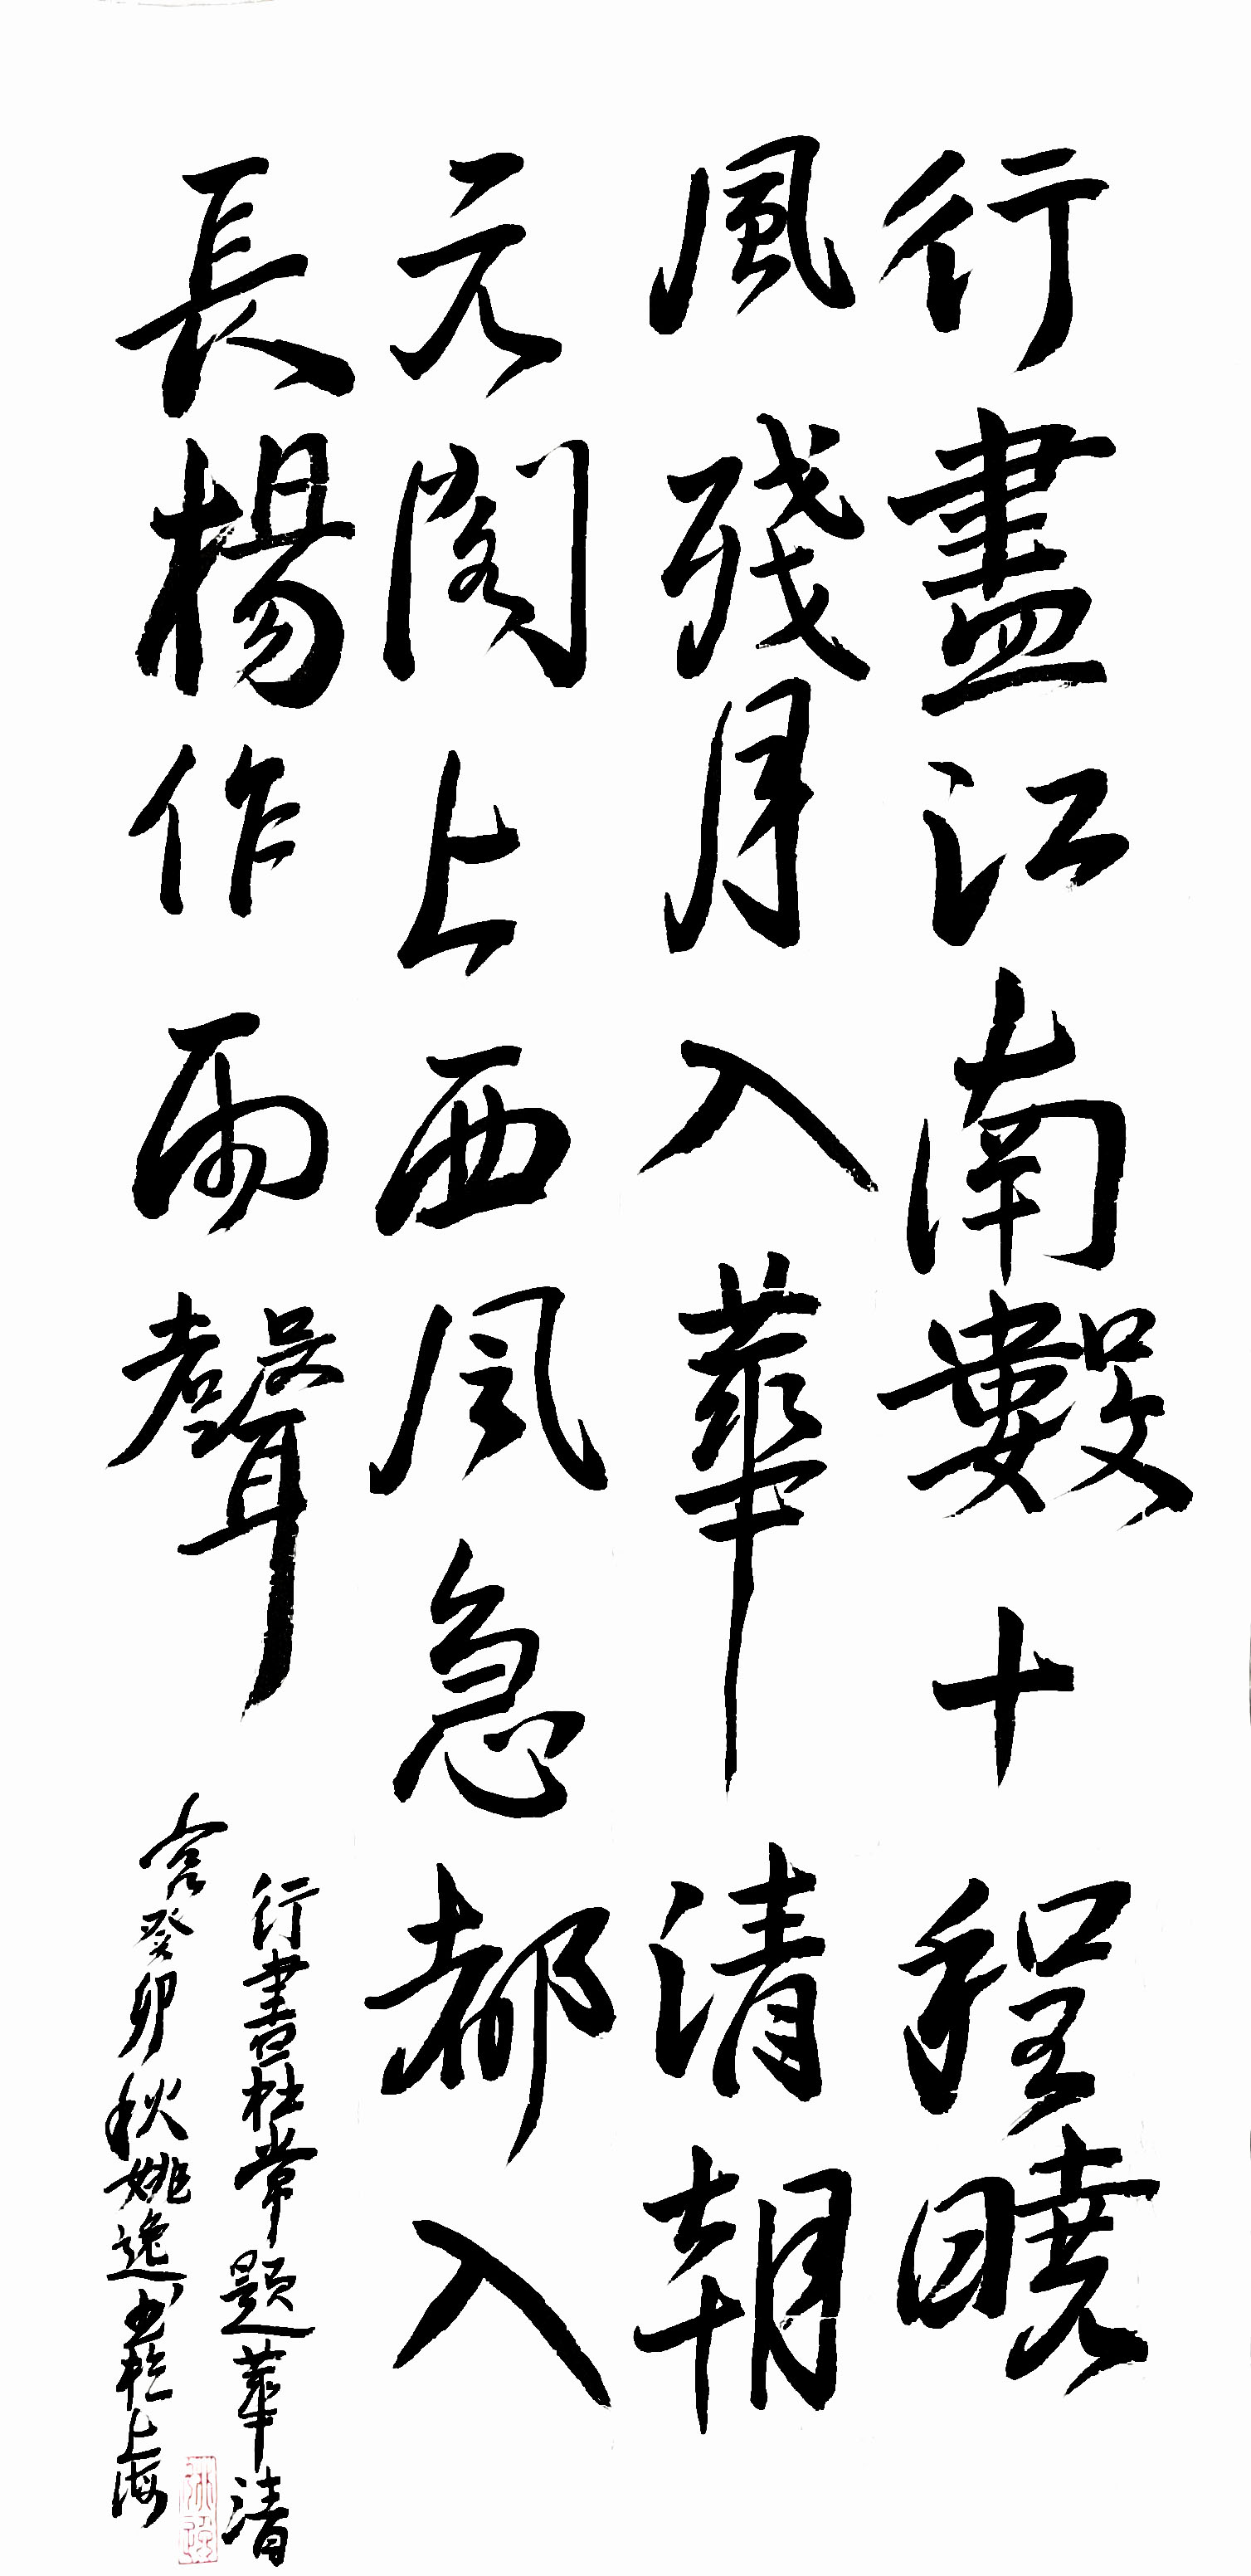 行盡江南數十程曉
風殘月入華清朝
元閣上西风急都入
長楊作雨聲
行書杜常題華清
宮癸卯秋姚逸書於上海